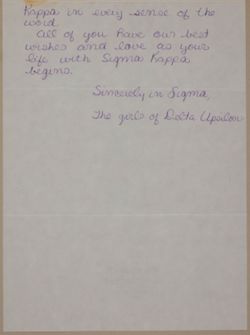 Kappa in every sense of the
word.
All of you have our best
wishes and love as your
life with Sigma Kappa
begins.
Sincerely in Sigma,
The girls of Delta Upsilon